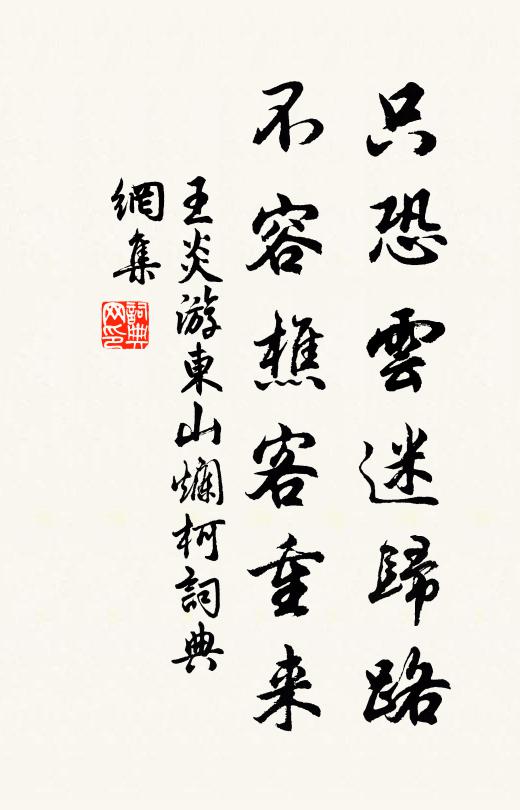 只恐雲迷歸路
不容樵客重来
王炎游東山爛柯詞典
網集
詞典网印